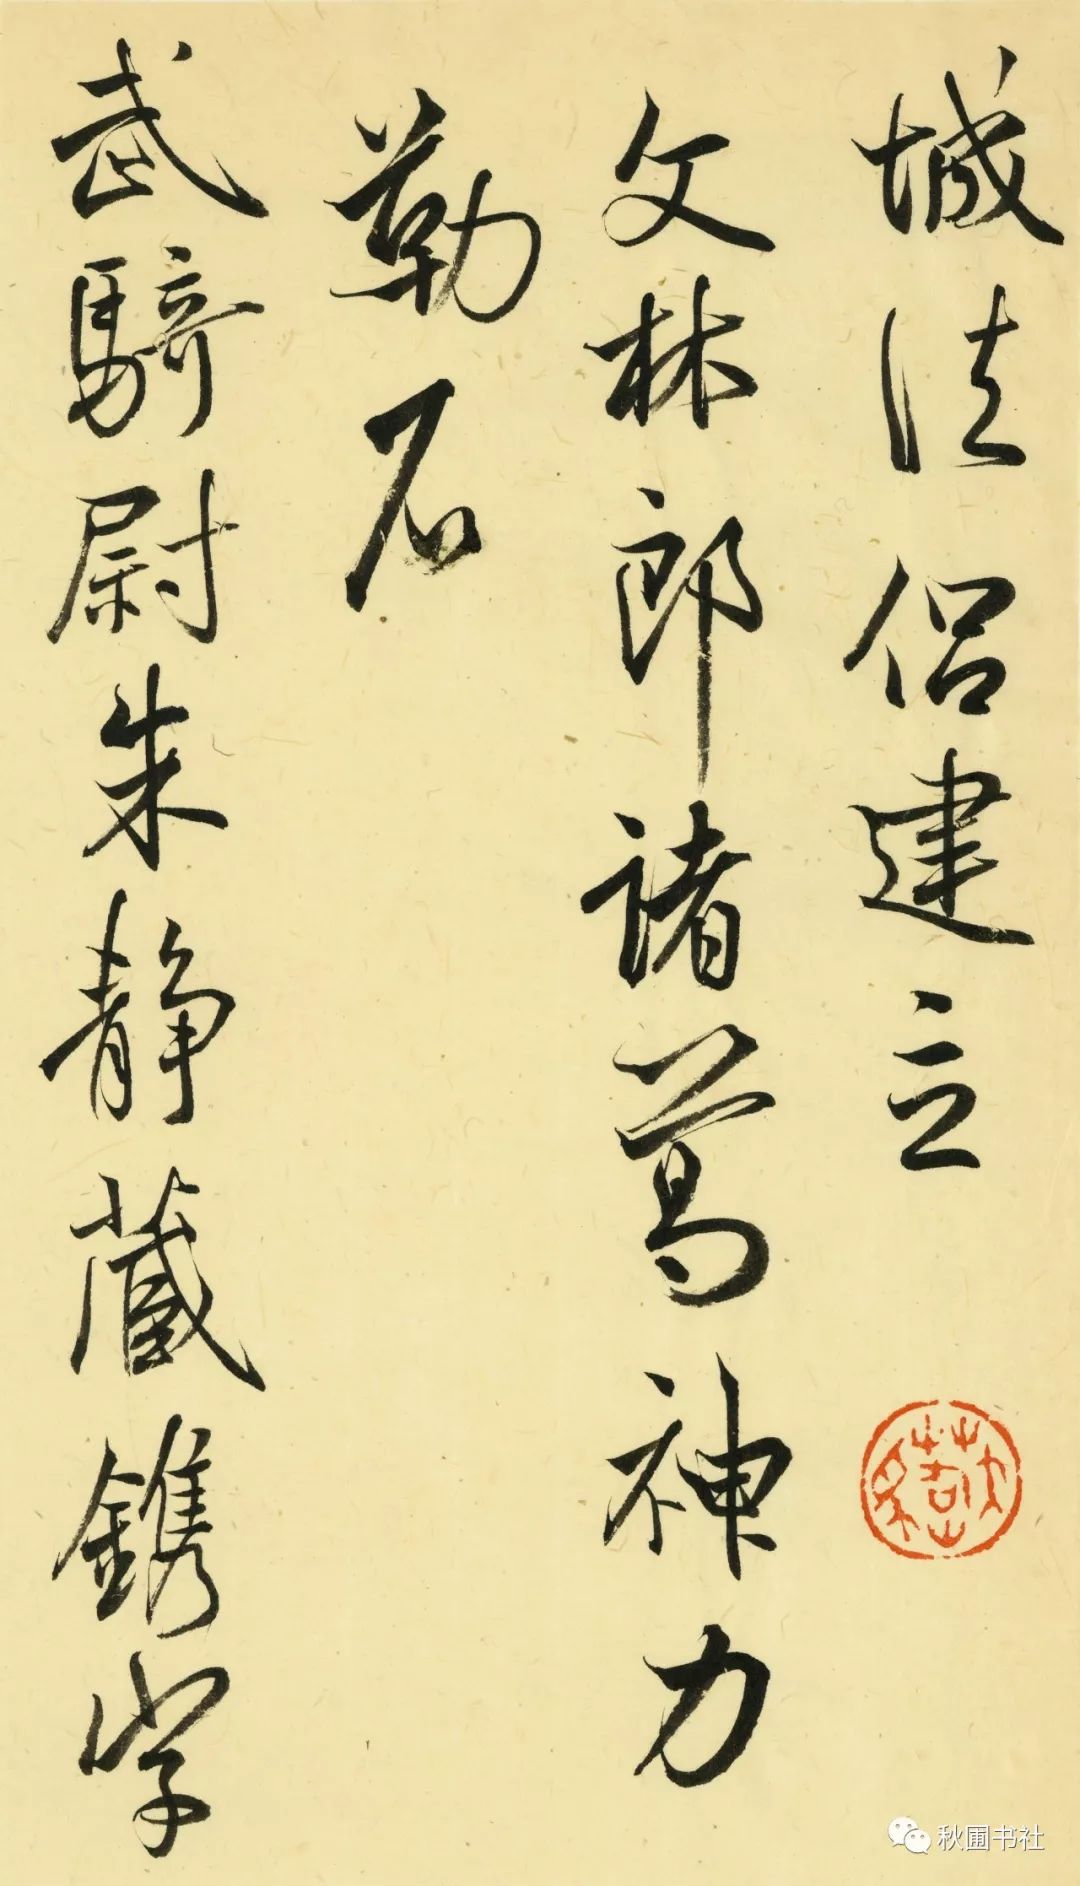 城法侣建立
文林郎诸葛神力
勒石
武騎尉朱静藏鐫字
秋圃书社